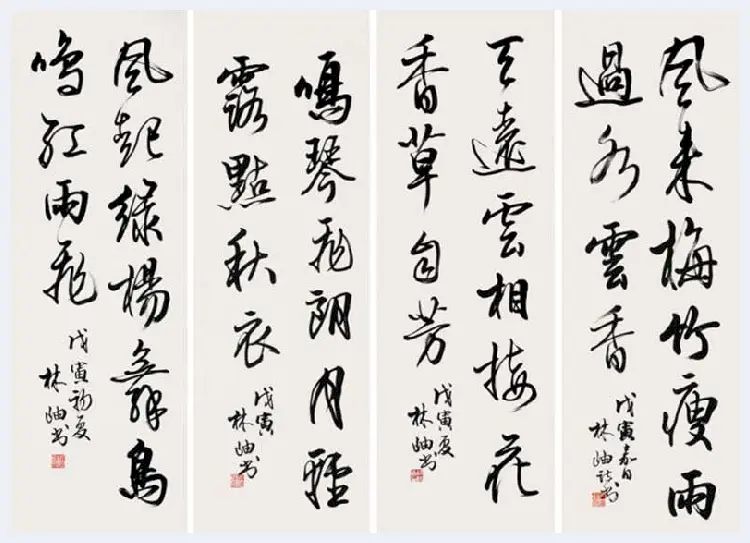 風来梅竹瘦雨
過水雲香
戊寅嘉日
林岫書
天遠雲相接花
香草自芳
戊寅夏
林岫書
鳴琴飛朗月輕
露點秋衣
戊寅
林岫書
風起綠楊舞鳥
鳴紅雨飛
戊寅初夏
林岫書